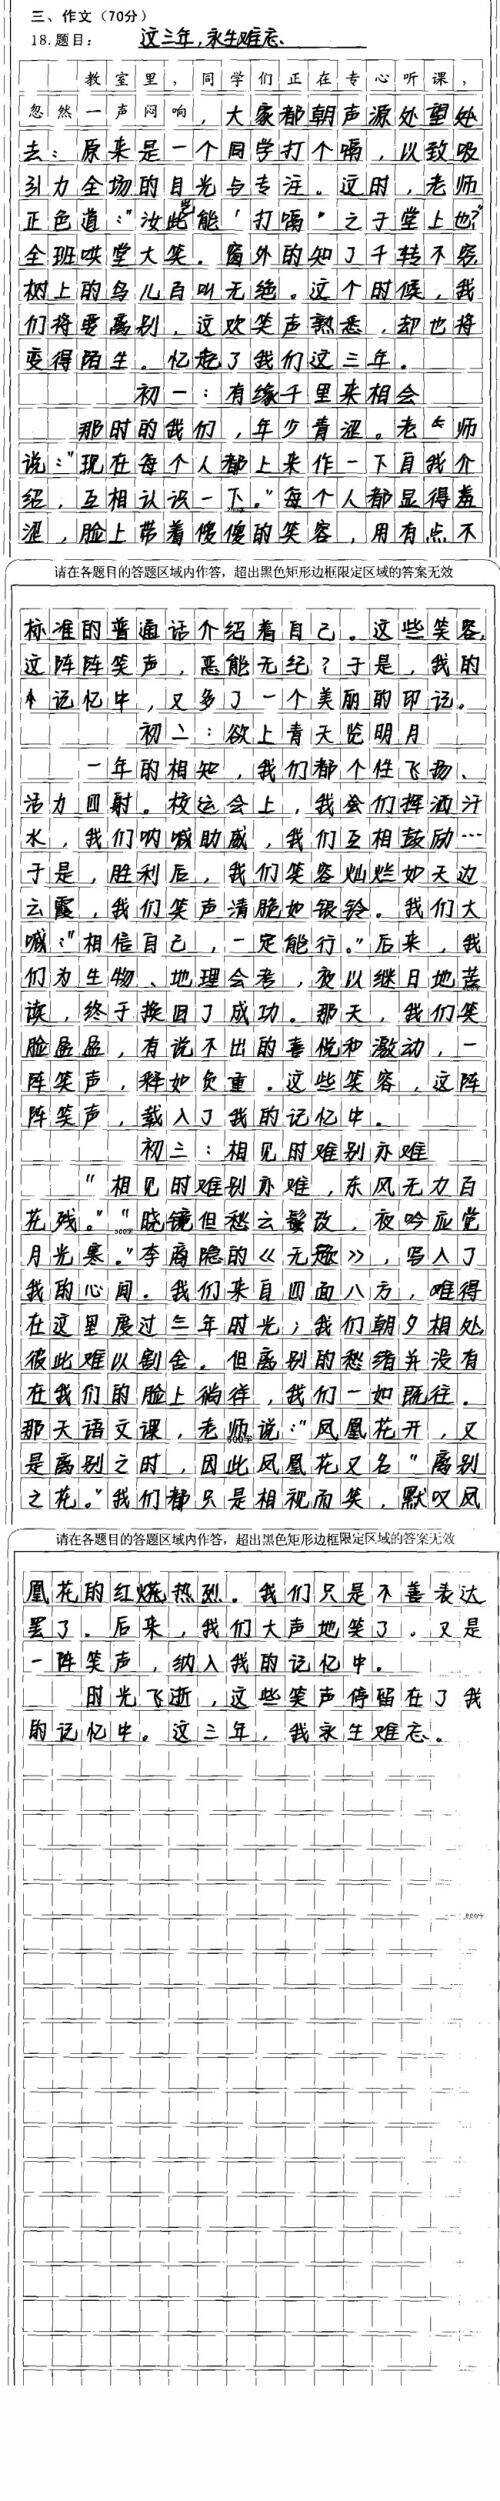 三、作文（70分）
18.题目： 这三年,永生难忘、
教室里，同学们正在专心听课，
忽然一声闷响，大家都朝声源处望处
去：原来是一个同学打个嗝，以致吸
引力全场的目光与专注。这时，老师
正色道："汝此岂能'打嗝"之于堂上也?"
全班哄堂大笑。窗外的知了千转不穷
树上的鸟儿百叫无绝。这个时候，我
们将要离别，这欢笑声熟悉，却也将
变得陌生。忆起了我们这三年。
初一：有缘千里来相会
那时的我们，年少青涩。老师
说："现在每个人都上来作一下自我介
绍，互相认识一下。"每个人都显得羞
涩，脸上带着傻傻的笑容，用有点不
请在各题目的答题区域内作答，超出黑色矩形边框限定区域的答案无效
标准的普通话介绍着自己。这些笑容,
这阵阵笑声，恶能无纪？于是，我的
记忆中，又多了一个美丽的印记。
初二：欲上青天览明月
一年的相知，我们都个性飞扬、
活力四射。校运会上，我会们挥洒汗
水，我们呐喊助威，我们互相鼓励…
于是，胜利后，我们笑容灿烂如天边
云霞，我们笑声清脆如银铃。我们大
喊："相信自己，一定能行。"后来，我
们为生物、地理会考，夜以继日地苦
读，终于换回了成功。那天，我们笑
脸盈盈，有说不出的喜悦和激动，一
阵笑声，释如负重。这些笑容，这阵
阵笑声，载入了我的记忆中。
初三：相见时难别亦难
"相见时难别亦难，东风无力百
花残。""晓镜但愁云鬓改，夜吟应觉
月光寒。"李商隐的《无题》，写入了
我的心间。我们来自四面八方，唯得
在这里度过三年时光；我们朝夕相处
彼此难以割舍。但离别的愁绪并没有
在我们的脸上徜徉，我们一如既往。
那天语文课，老师说："凤凰花开，又
是离别之时，因此凤凰花又名"离别
之花。"我们都只是相视而笑，默叹凤
请在各题目的答题区域内作答，超出黑色矩形边框限定区域的答案无效
凰花的红烧热烈。我们只是不善表达
罢了。后来，我们大声地笑了。又是
一阵笑声，纳入我的记忆中。
时光飞逝，这些笑声停留在了我
的记忆中。这三年，我永生难忘。